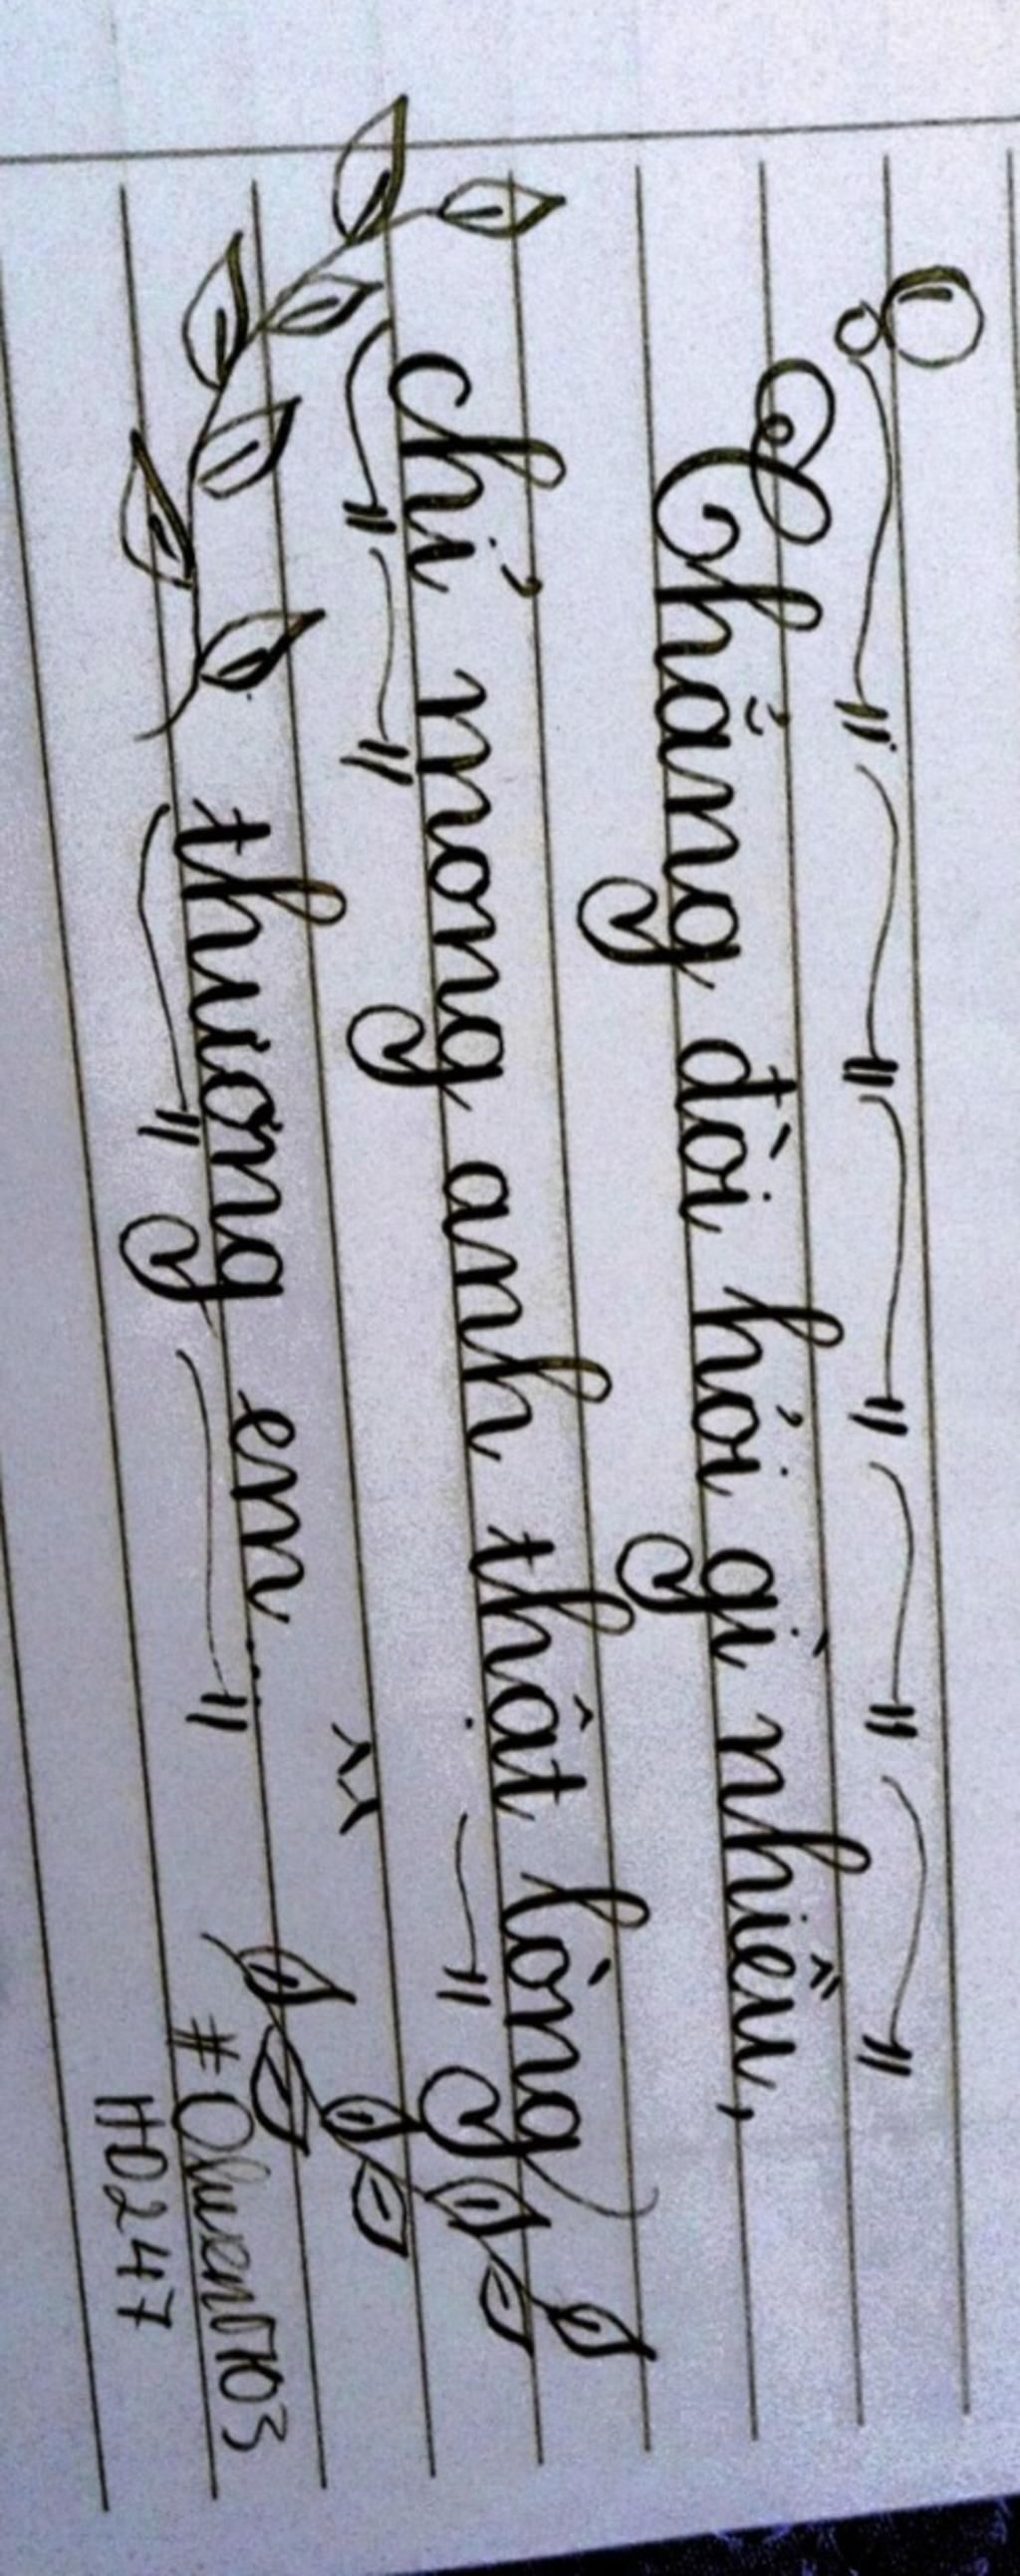 Chẳng đòi hỏi gì nhiều,
chỉ mong anh thật lòng
thương em...
HD247